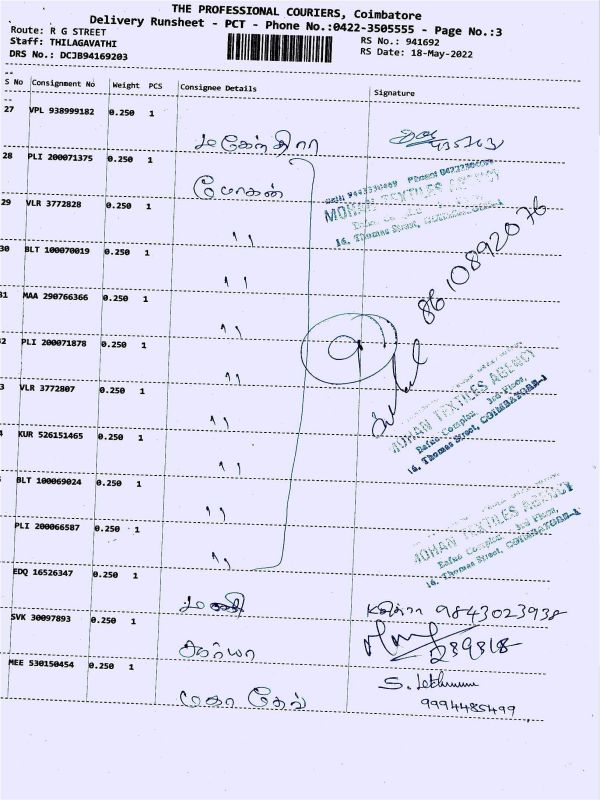 THE PROFESSIONAL COURIERS, Coimbatore
Delivery Runsheet - PCT - Phone No.:0422-3505555 - Page No.:3
Route: R G STREET
RS No.: 941692
Staff: THILAGAVATHI
RS Date: 18-May-2022
DRS No.: DCJB94169203
S No Consignment No Weight PCS Consignee Details Signature
27 VPL 938999182 0.250 1
மகேந்திரா
28 PLI 200071375 0.250 1
மோகன்
MOHAN TEXTILES AGENCY
16, Thomas Street,
29 VLR 3772828 0.250 1
"
30 BLT 100070019 0.250 1
"
8610892076
31 MAA 290766366 0.250 1
"
9
2 PLI 200071878 0.250 1
"
3 VLR 3772807 0.250 1
"
MOHAN TEXTILES AGENCY
Rafna Complex 3rd Floor,
16, Thomas Street, COIMBATORE-1
KUR 526151465 0.250 1
"
BLT 100069024 0.250 1
"
MOHAN TEXTILES AGENCY
Rafna Complex 3rd Floor,
16, Thomas Street, COIMBATORE-1
PLI 200066587 0.250 1
"
EDQ 16526347 0.250 1
9843023938
SVK 30097893 0.250 1
சூர்யா
MEE 530150454 0.250 1
மகாதேவ்
9994485499